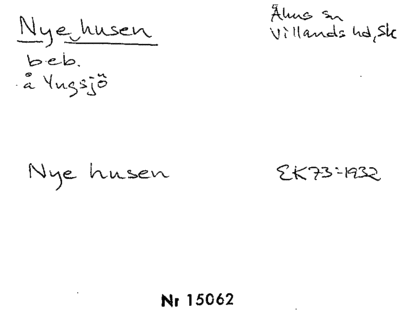 Nye husen
Åhus sn
Villands hd, Sk
beb.
å Yngsjö
Nye husen
EK73-1932
Nr 15062